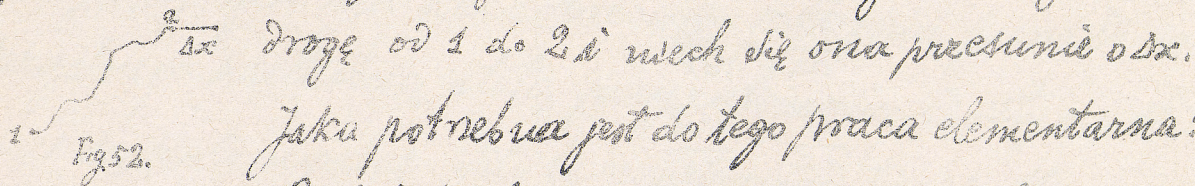 2
Δx drogę od 1 do 2 i niech się ona przesunie o Δx.
1
Jaka potrzebna jest do tego praca elementarna:
Fig. 52.